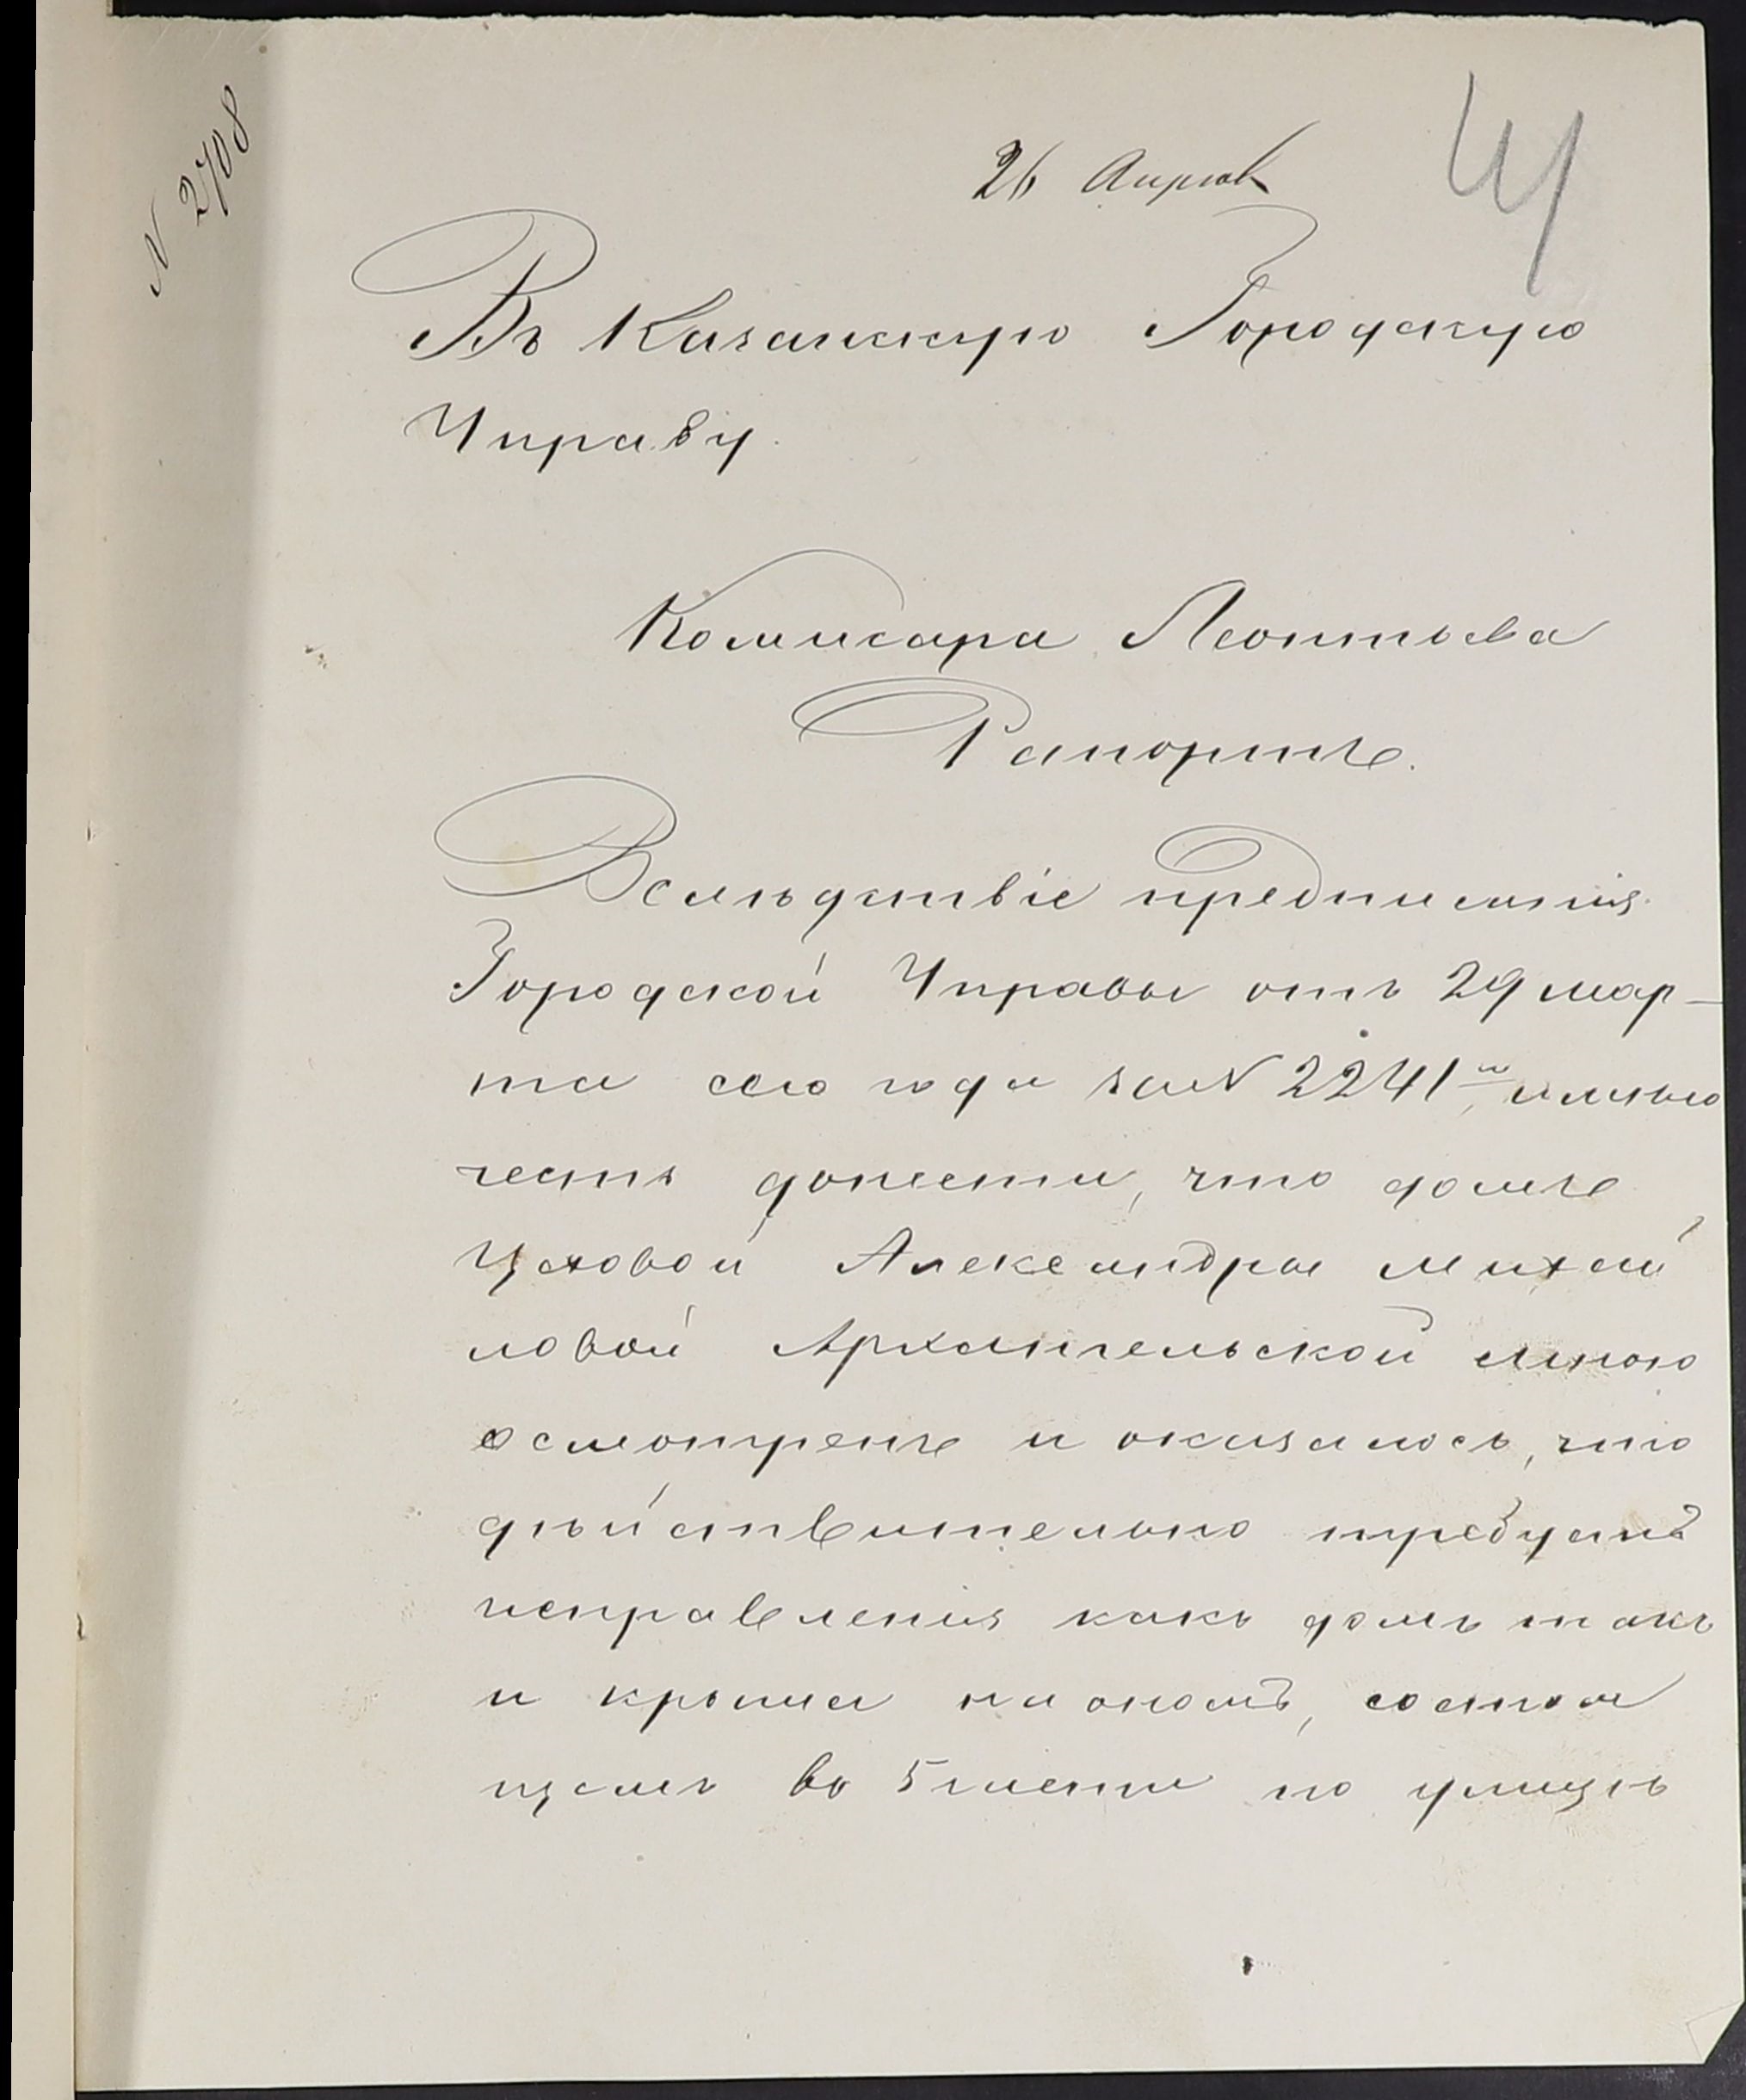 N 2708
26 Апреля
Въ Казанскую Городскую
Управу.
Комисара Леонтьева
Рапортъ.
Вслѣдствіе предписанія
Городской Управы отъ 29 мар-
та сего года за N 2241 м, имѣю
честь донести, что домъ
Цеховой Александры Михай
ловой Архангельской мною
осмотренъ и оказалось, что
дѣйствительно требуетъ
исправления какъ домъ такъ
и крыша на ономъ, состоя
щемъ во 5 части по улицѣ